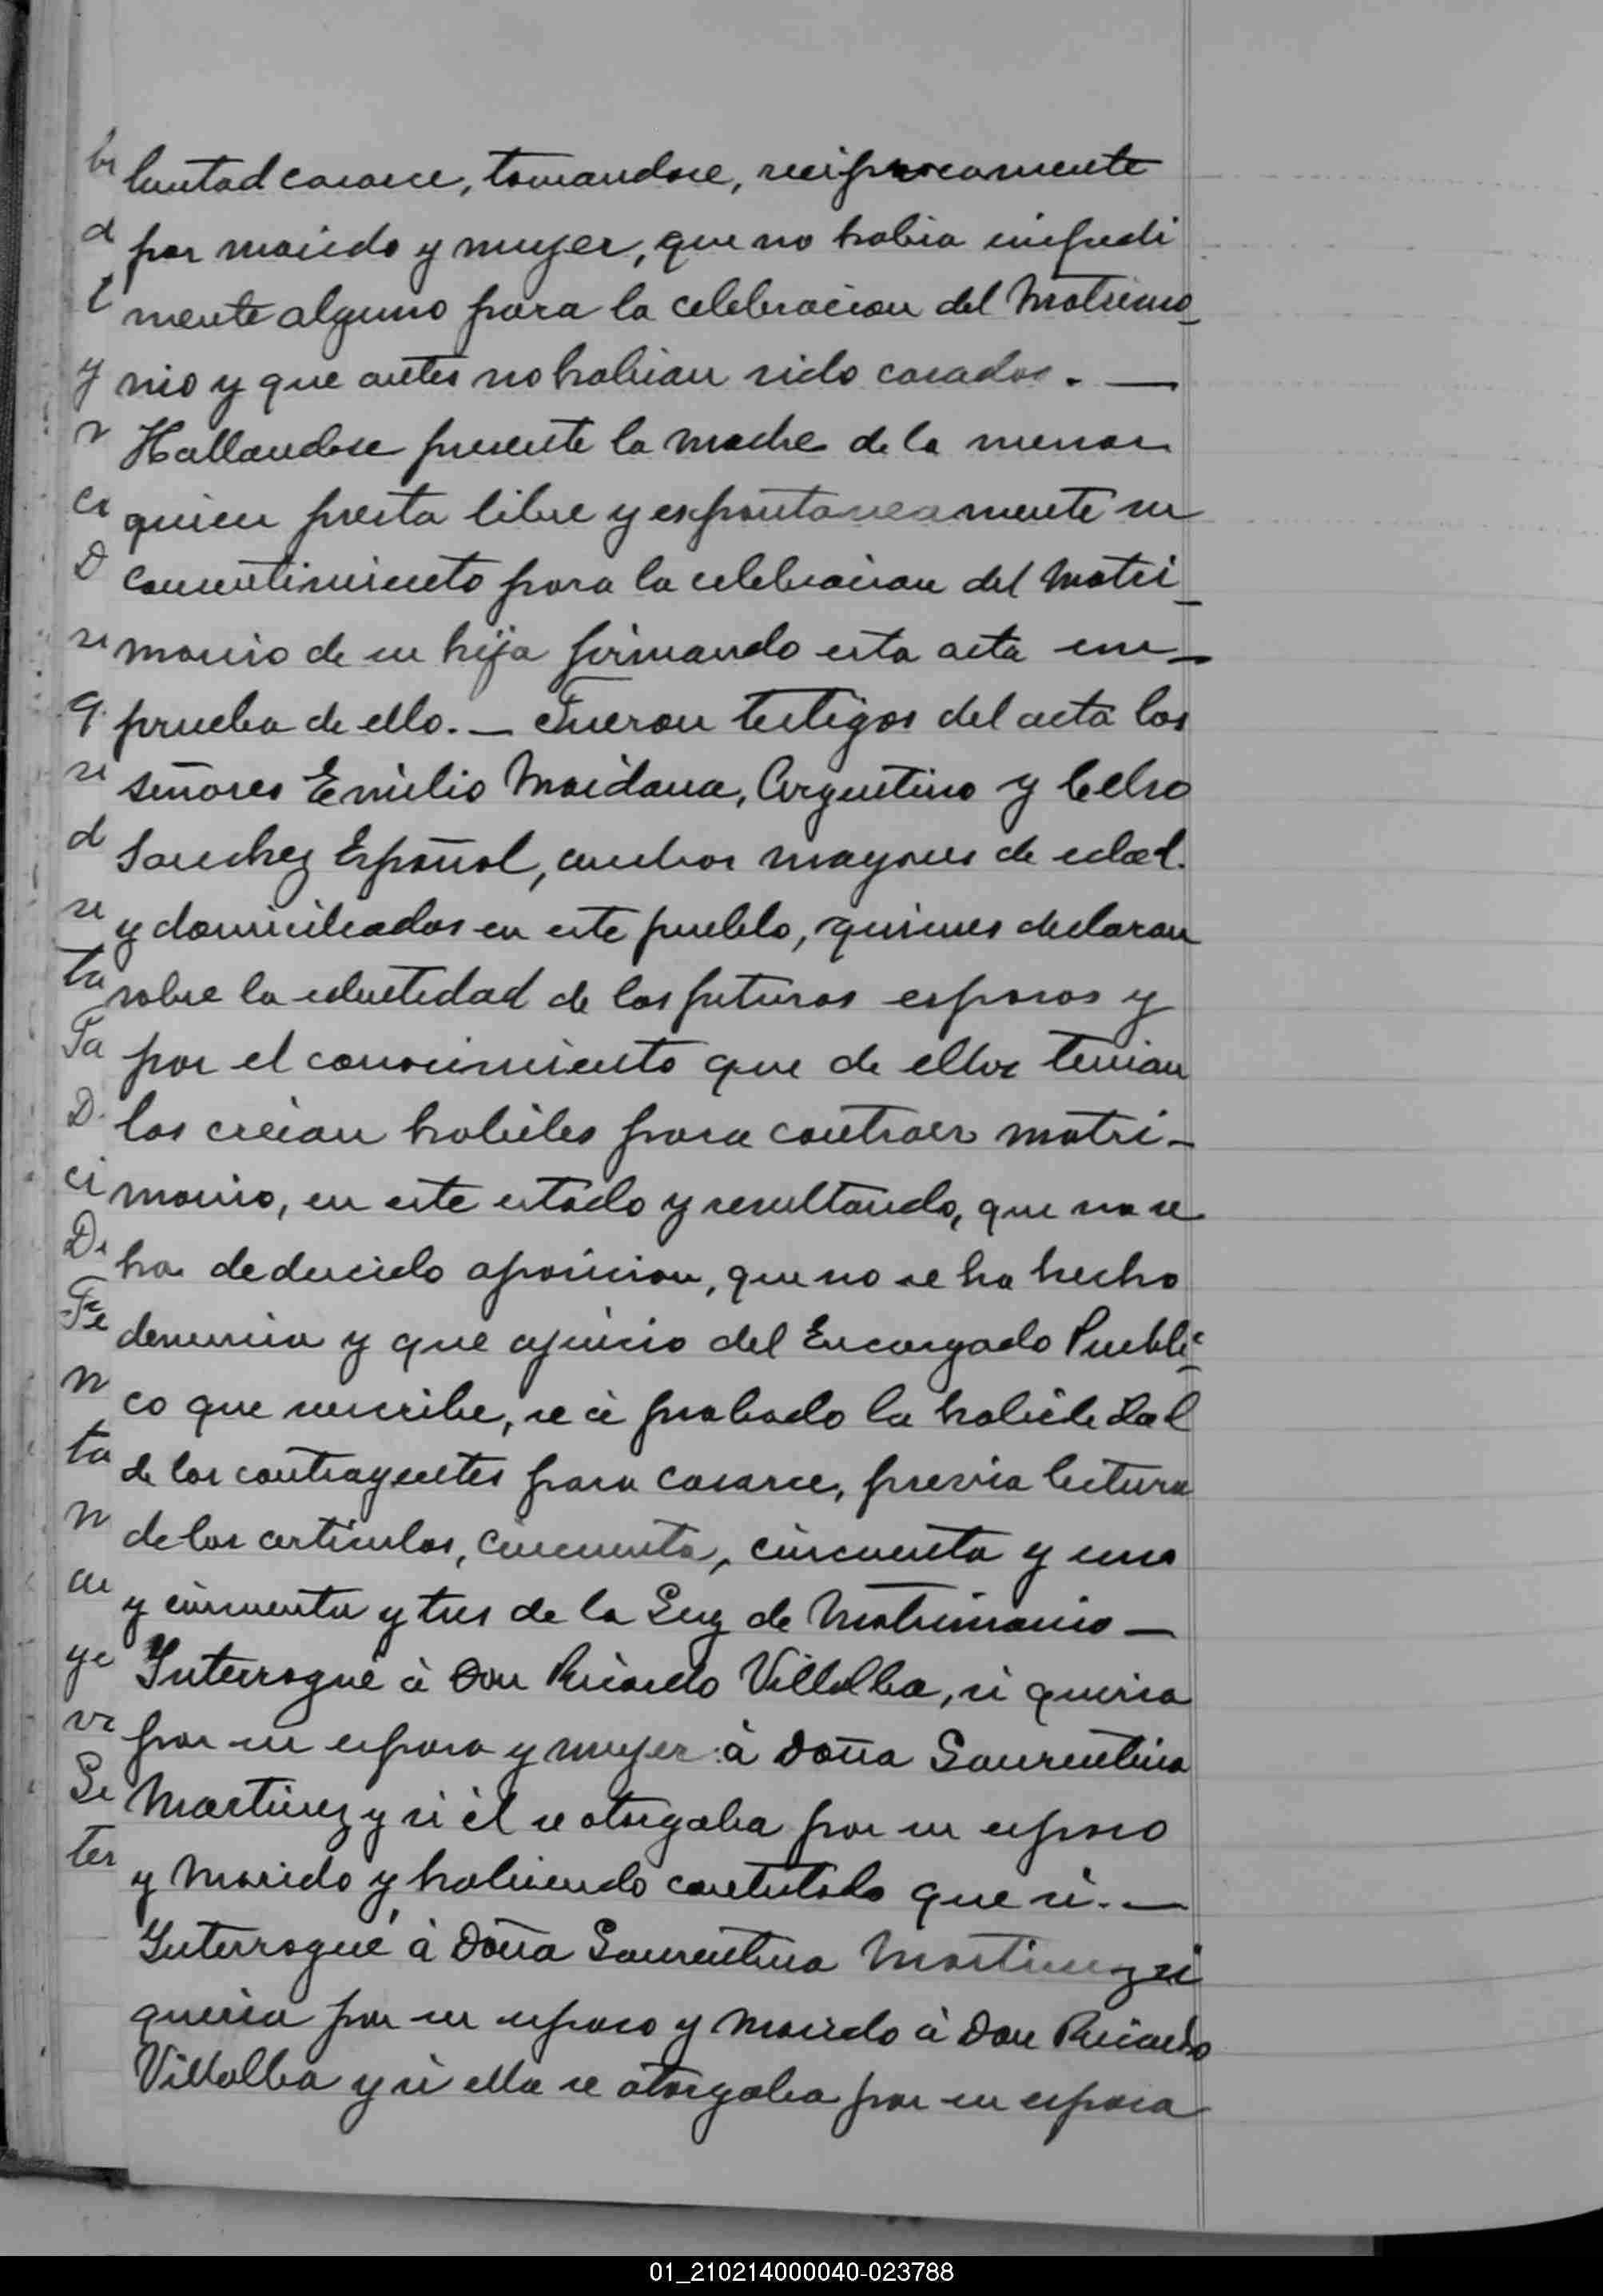 luntad casarce, tomandose, reciprocamente
por marido y mujer, que no habia impedi
mente alguno para la celebracion del Matrimo_
nio y que antes no habian sido casados. —
Hallandose presente la madre de la menor
quien presta libre y espontaneamente su
consentimiento para la celebracion del Matri_
monio de su hija firmando esta acta en—
prueba de ello. — Fueron testigos del acta los
señores Emilio Maidana, Argentino y Celso
Sanchez Español, ambos mayores de edad.
y domiciliados en este pueblo, quienes declaran
sobre la edentidad de los futuros esposos y
por el conocimiento que de ellos tenian
los creian habiles para contraer matri-
monio, en este estado y resultando, que no se
ha deducido oposicion, que no se ha hecho
denuncia y que ajuicio del Encargado Publi_
co que suscribe, se á probado la habilidad
de los contrayentes para casarce, previa lectura
de los articulos, cincuenta, cincuenta y uno
y cincuenta y tres de la Ley de Matrimonio —
Interrogué á Don Ricardo Villalba, si queria
por su esposa y mujer á doña Laurentina
Martinez y si él se otorgaba por su esposo
y Marido y habiendo contestado que si. —
Interrogué á Doña Laurentina Martinez si
queria por su esposo y Marido á Don Ricardo
Villalba y si ella se otorgaba por su esposa
01_210214000040-023788